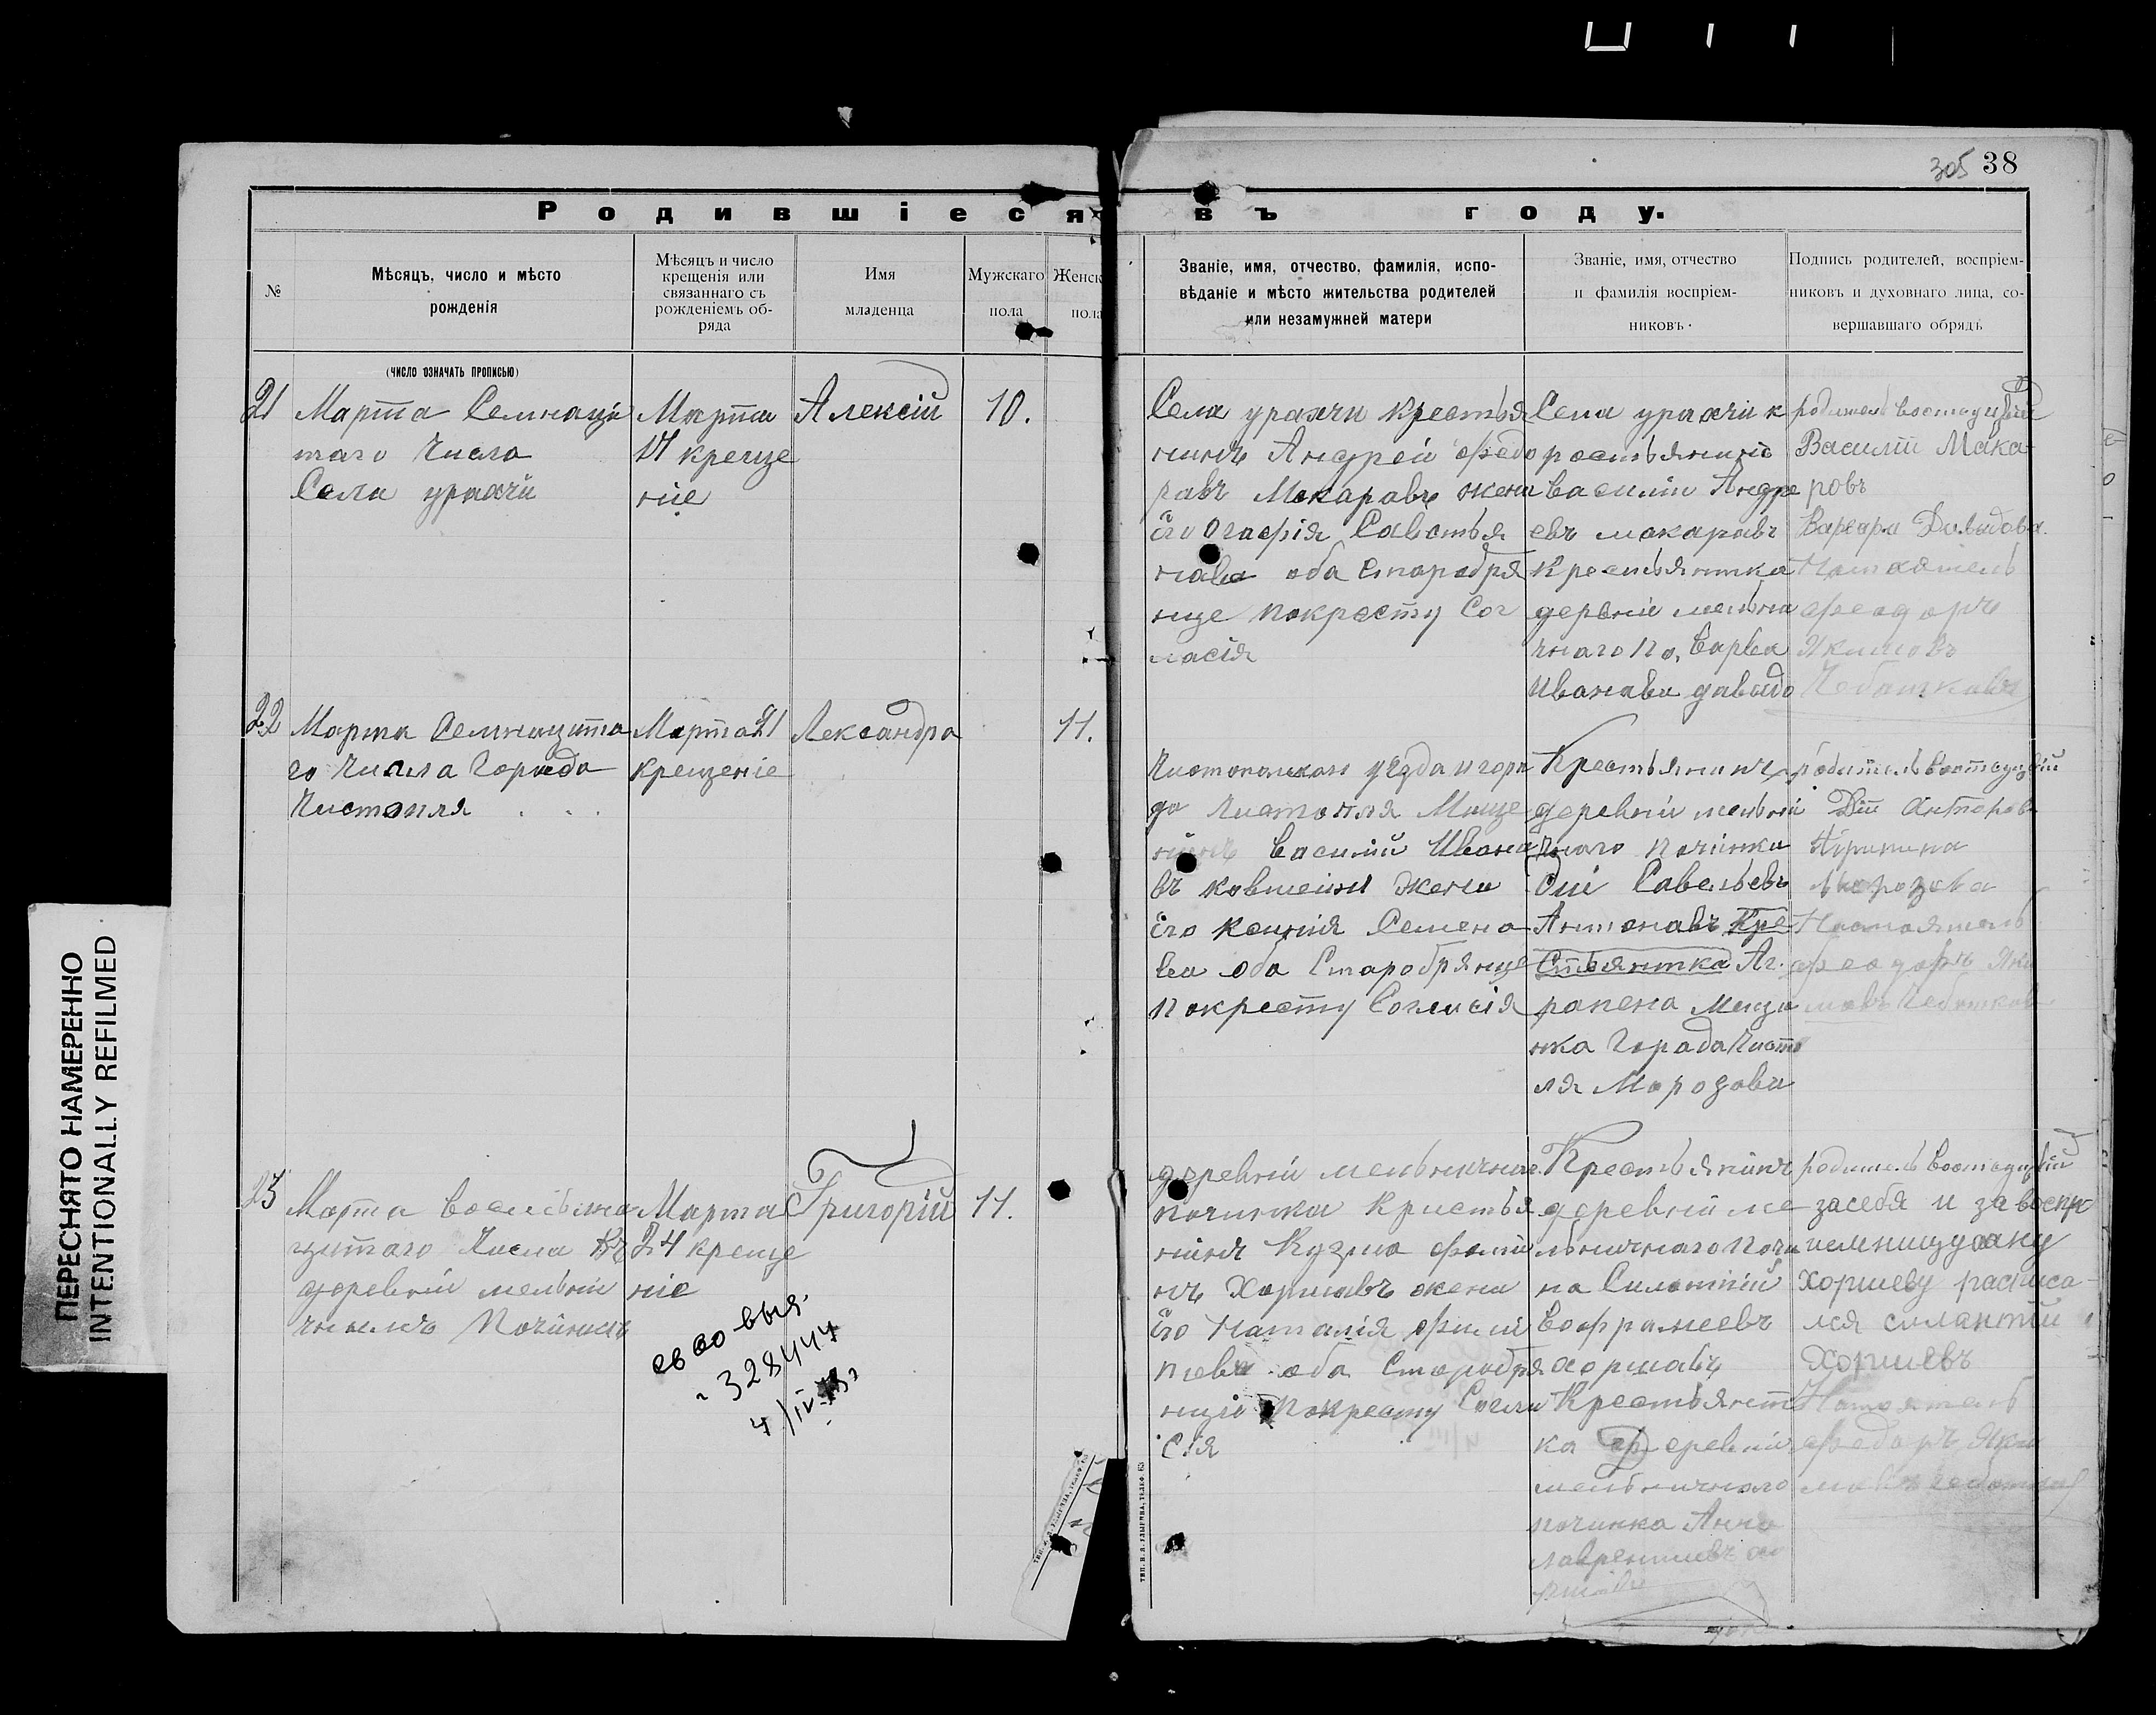 305 38
Родившіеся въ году.
№
Мѣсяцъ, число и мѣсто
рожденія
Мѣсяцъ и число
крещенія или
связаннаго съ
рожденіемъ об-
ряда
Имя
младенца
Мужскаго
пола
Женск
пола
Званіе, имя, отчество, фамилія, испо-
вѣданіе и мѣсто жительства родителей
или незамужней матери
Званіе, имя, отчество
и фамилія воспріем-
никовъ.
Подпись родителей, воспріем-
никовъ и духовнаго лица, со-
вершавшаго обрядъ
(число означать прописью)
21
Марта Семнаца
таго Числа
Села урахчи
Марта
17 креще
ніе
Алексій
10.
Села урахчи Крестья
нинъ Андрей Федо
равъ Макаравъ жена
его Огафія Савостья
нава оба Старобря
нце Покресту Сог
ласія
Села урахчи к
рестьянинъ
василіи Андре
евъ макаравъ
Крестьянтка
деревни мельни
чнаго По, Варва
Иванава давыдо
родитель
Василій Мака-
ровъ
Варвара Давыдова.
Настоятель
Феодоръ
Якимовъ
Чебашкавъ
22
Марта Семнацата
го Числа Горада
Чистопля
Марта 21
крещеніе
Лександра
11.
Чистопольскаго уезда и гора
да Чистополя Мище
нинъ Василий Ивона
въ ковшеини Жена
его Ксинія Семено
ва оба Старобрянце
Покресту Согласія
Крестьянинъ
деревни мельни
чнаго Починка
Сий Савельевъ
Антонавъ Кре
стьянтка Аг.
рапена Меща
нка Горада Чисто
ля Марозава
родитель
Агрипина
Морозова
Настоятель
Феодоръ Яки
мовъ Чебашкавъ
23
Марта восемьна
цатаго Числа въ
деревни мельни
чнымъ Починкъ
Марта
24 креще
ніе
Григорій
11.
св во выд.
328444
деревни мельничнаг.
починка Кристья
нинъ Кузма
нъ Хоршавъ жена
его Наталія
пева оба Старобря
нци Покресту Согла
сія
Крестьянинъ
деревни ме
льничнаго Почи
на Силантий
Варфамеевъ
хоршавъ
Крестьянт
ка деревни
мельничнаго
починка Анна
лаврентиевъ хо
родитель
за себя и за воспр
иемницу анну
Хоршеву расписа-
лся силантий
Хоршевъ
Настоятель
Федоръ Яки
ПЕРЕСНЯТО НАМЕРЕННО
INTENTIONALLY REFILMED